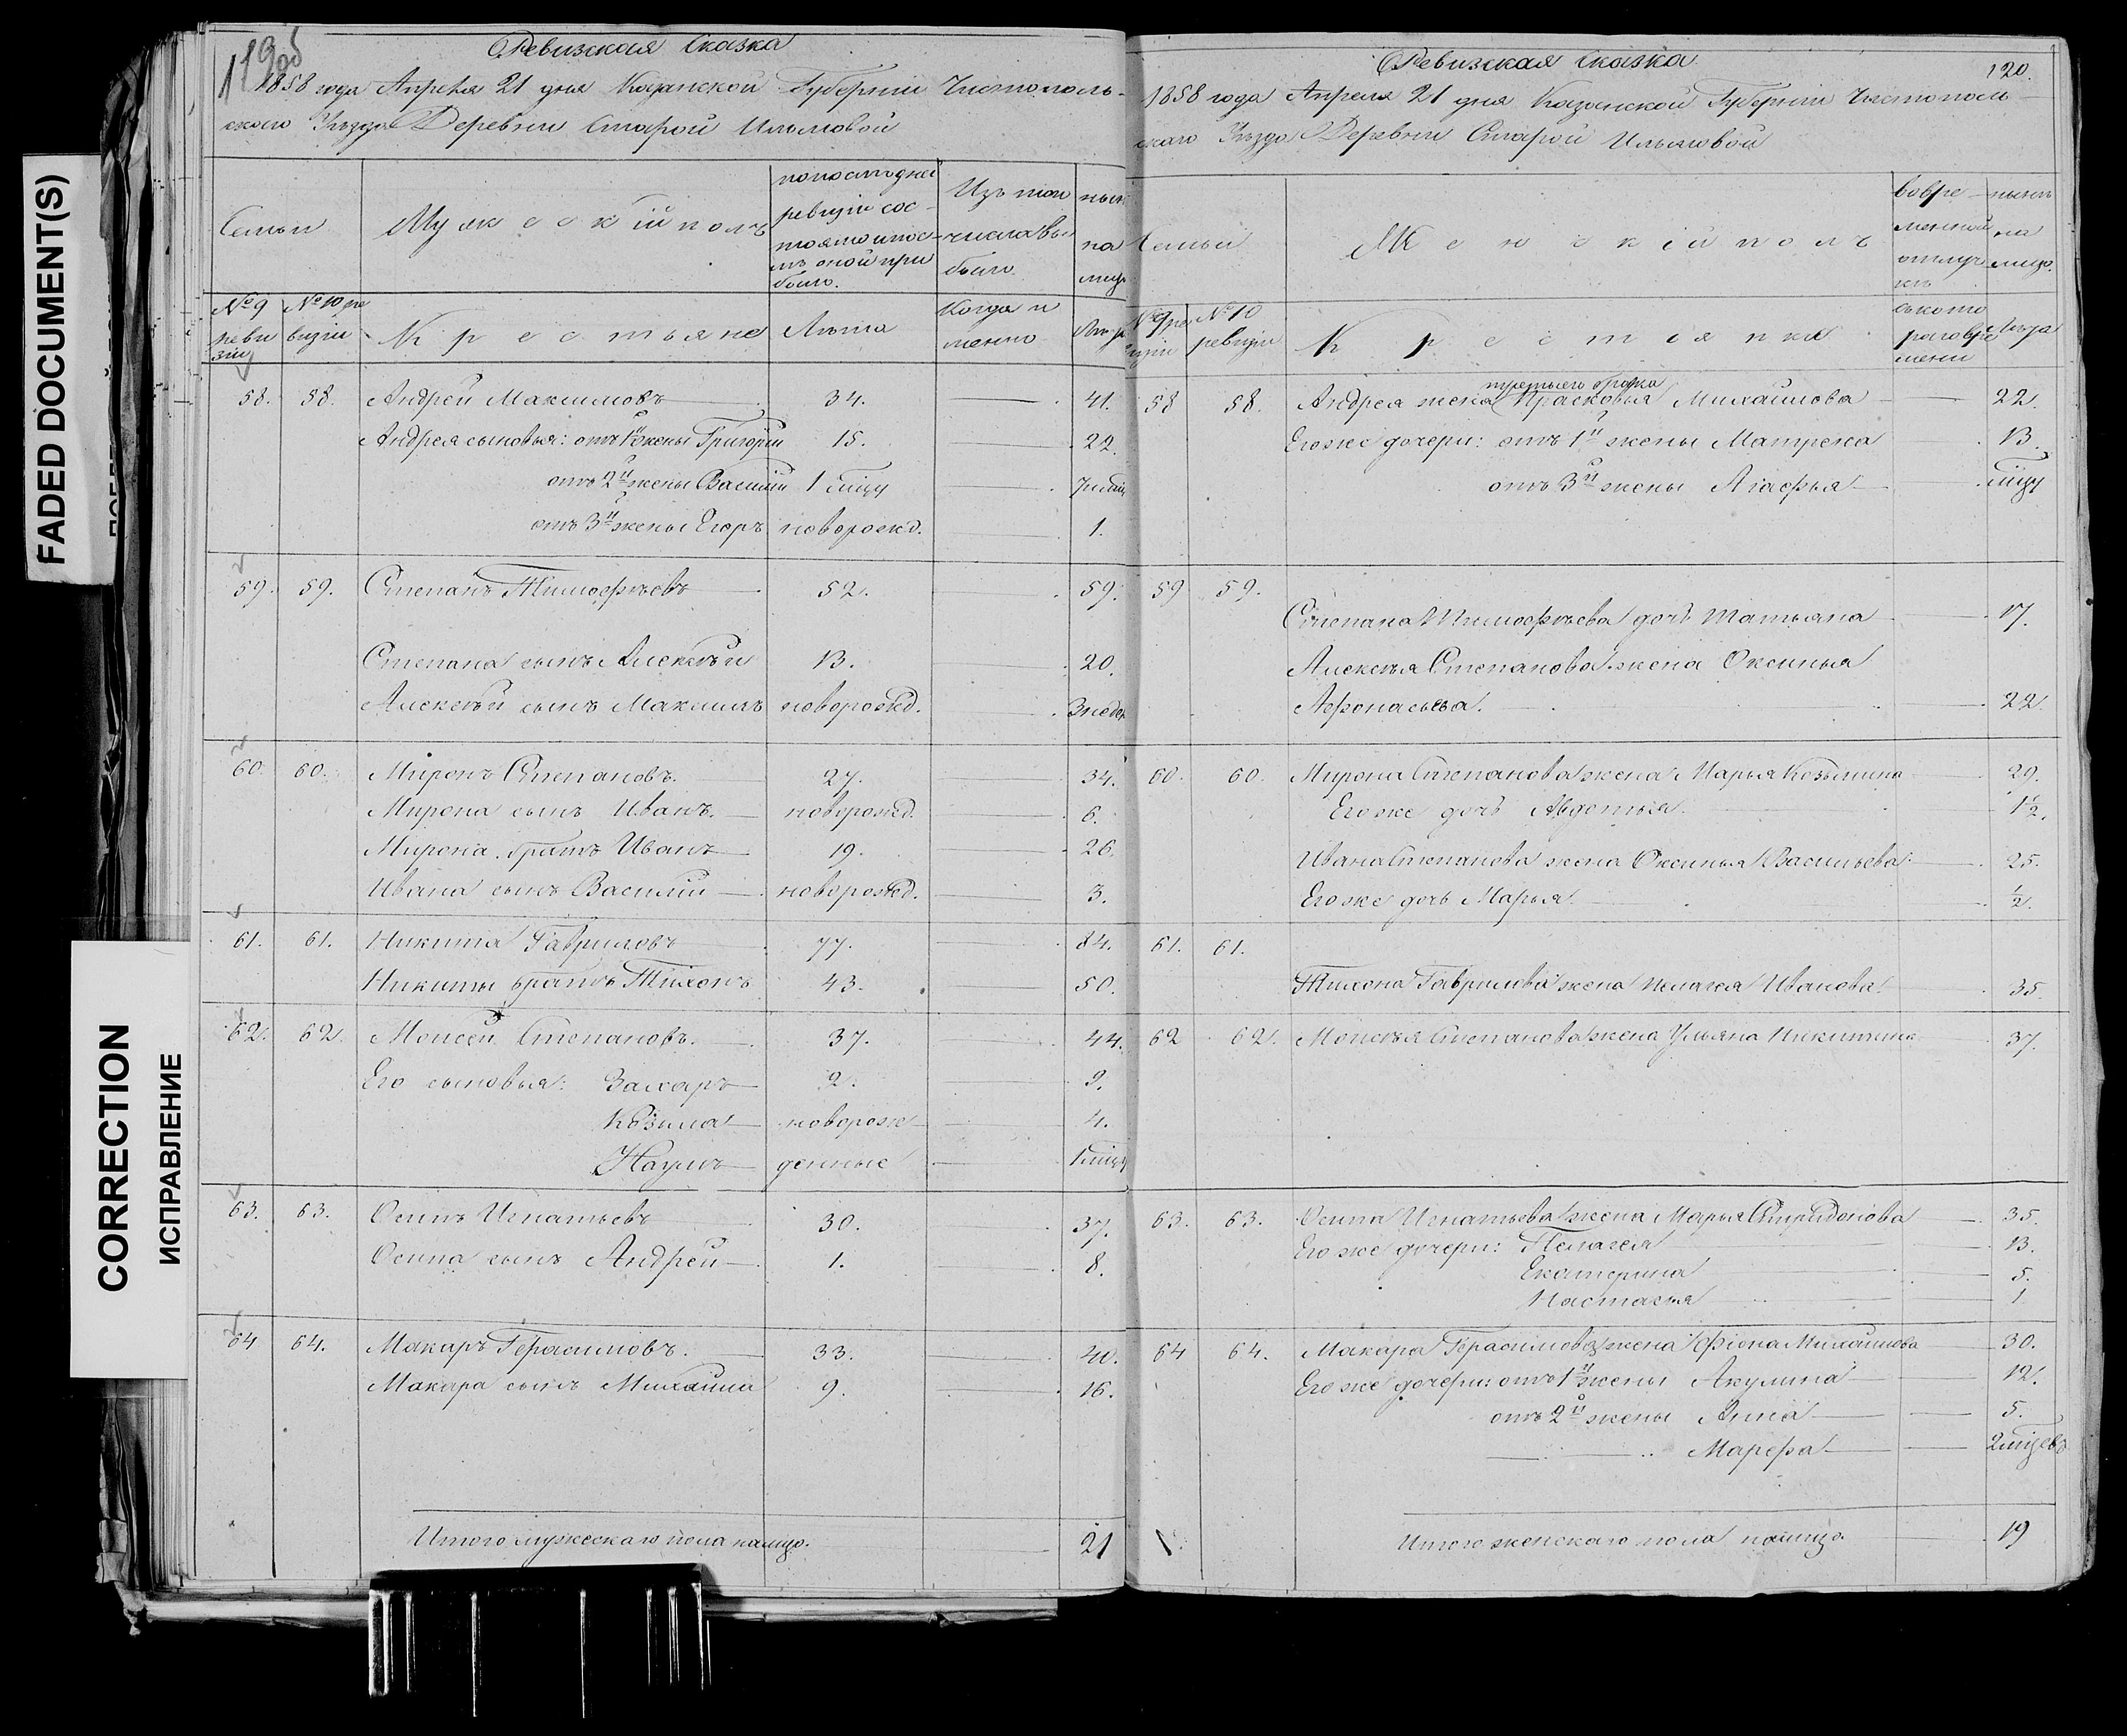 119 об
Ревизская Сказка
1858 года Апреля 21 дня Казанской Губерніи Чистополь-
скаго Уѣзда Деревни Старой Ильмовой
Семьи
Мужескій полъ
по послѣдней ревизіи состояло и послѣ оной прибыло.
Изъ того числа выбыло.
нынѣ на лицо
№ 9 ревизіи
№ 10 ревизіи
Крестьяне
Лѣта
Когда именно
Лѣта
58. 58. Андрей Максимовъ 34. 41.
Андрея сыновья: отъ 1й жены Григорій 15. 22.
отъ 2й жены Василій 1 мцъ
отъ 3й жены Егоръ новорожд. 1.
59. 59. Степанъ Тимофѣевъ 52. 59.
Степана сынъ Алексѣй 13. 20.
Алексѣй сынъ Максимъ новорожд. 3 недѣ
60. 60. Миронъ Степановъ. 27. 34.
Мирона сынъ Иванъ. новорожд. 6.
Мирона братъ Иванъ 19. 26.
Ивана сынъ Василій новорожд. 3.
61. 61. Никита Гавриловъ 77. 84.
Никиты братъ Тихонъ 43. 50.
62. 62. Моисей Степановъ. 37. 44.
Его сыновья: Захаръ 2. 9.
Козьма новорож 4.
Наумъ денные
63. 63. Осипъ Игнатьевъ 30. 37.
Осипа сынъ Андрей 1. 8.
64 64. Макаръ Герасимовъ. 33. 40.
Макара сынъ Михайла 9. 16.
Итого мужескаго пола налицо. 21
120.
Ревизская Сказка
1858 года Апреля 21 дня Казанской Губерніи Чистополь
скаго Уѣзда Деревни Старой Ильмовой
Семьи
Женскій полъ
вовременной отлучкѣ
нынѣ на лицо.
№ 9 ревизіи
№ 10 ревизіи
Крестьянки
съ котораго времени
Лѣта
третьяго брака
58 58. Андрея жена Прасковья Михайлова 22
Егоже дочери: отъ 1й жены Матрена 13.
отъ 3й жены Агафья
59 59.
Степана Тимофѣева дочь Татьяна 17.
Алексѣя Степанова жена Оксинья
Афонасьева. 22.
60. 60. Мирона Степанова жена Марья Козьмина 29.
Егоже дочь Авдотья. 1½.
Ивана Степанова жена Оксинья Васильева 25.
Егоже дочь Марья ½.
61. 61.
Тихона Гаврилова жена Пелагея Иванова 35.
62 62. Моисѣя Степанова жена Ульяна Никитина 37.
63. 63. Осипа Игнатьева жена Марья Спиридонова 35.
Его же дочери: Пелагея 13.
Екатерина 5.
Настасья 1
64 64. Макара Герасимова жена Фіона Михайлова 30.
Его же дочери: отъ 1й жены Акулина 12.
отъ 2й жены Анна 5.
Марефа
Итого женскаго пола налицо. 19
FADED DOCUMENT(S)
CORRECTION
ИСПРАВЛЕНИЕ